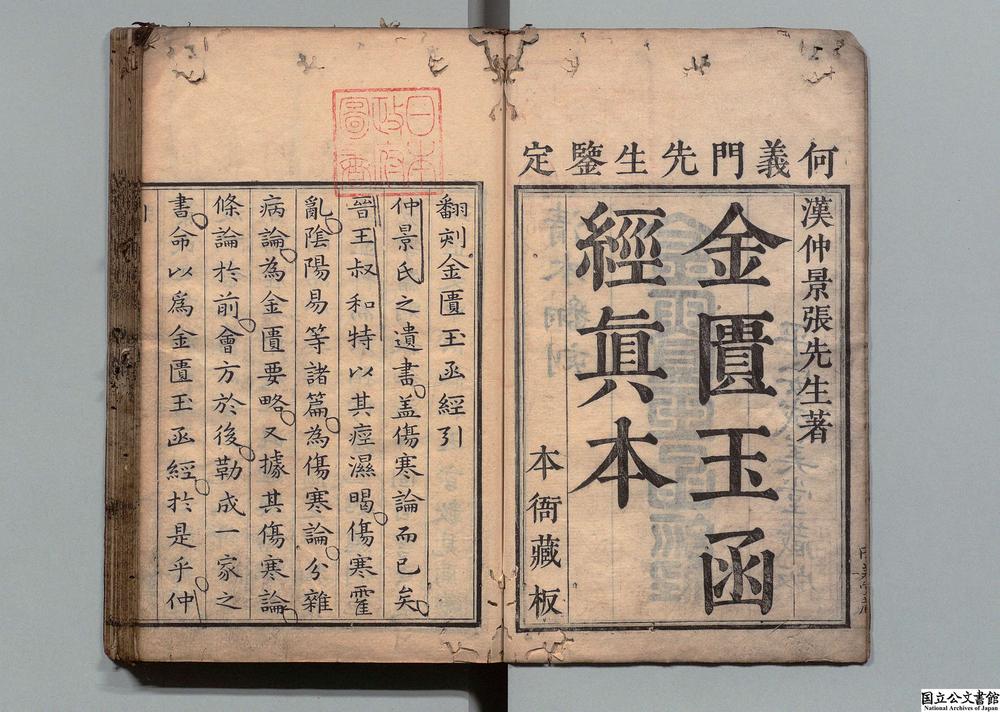 何義門先生鑒定
漢仲景張先生著
金匱玉函
經眞本
本衙藏板
日本
政府
圖書
翻刻金匱玉函經引
仲景氏之遺書蓋傷寒論而已矣
晉王叔和特以其痙濕暍傷寒霍
亂陰陽易等諸篇為傷寒論分雜
病論為金匱要略又據其傷寒論
條論於前會方於後勒成一家之
書命以爲金匱玉函經於是乎仲
国立公文書館
National Archives of Japan